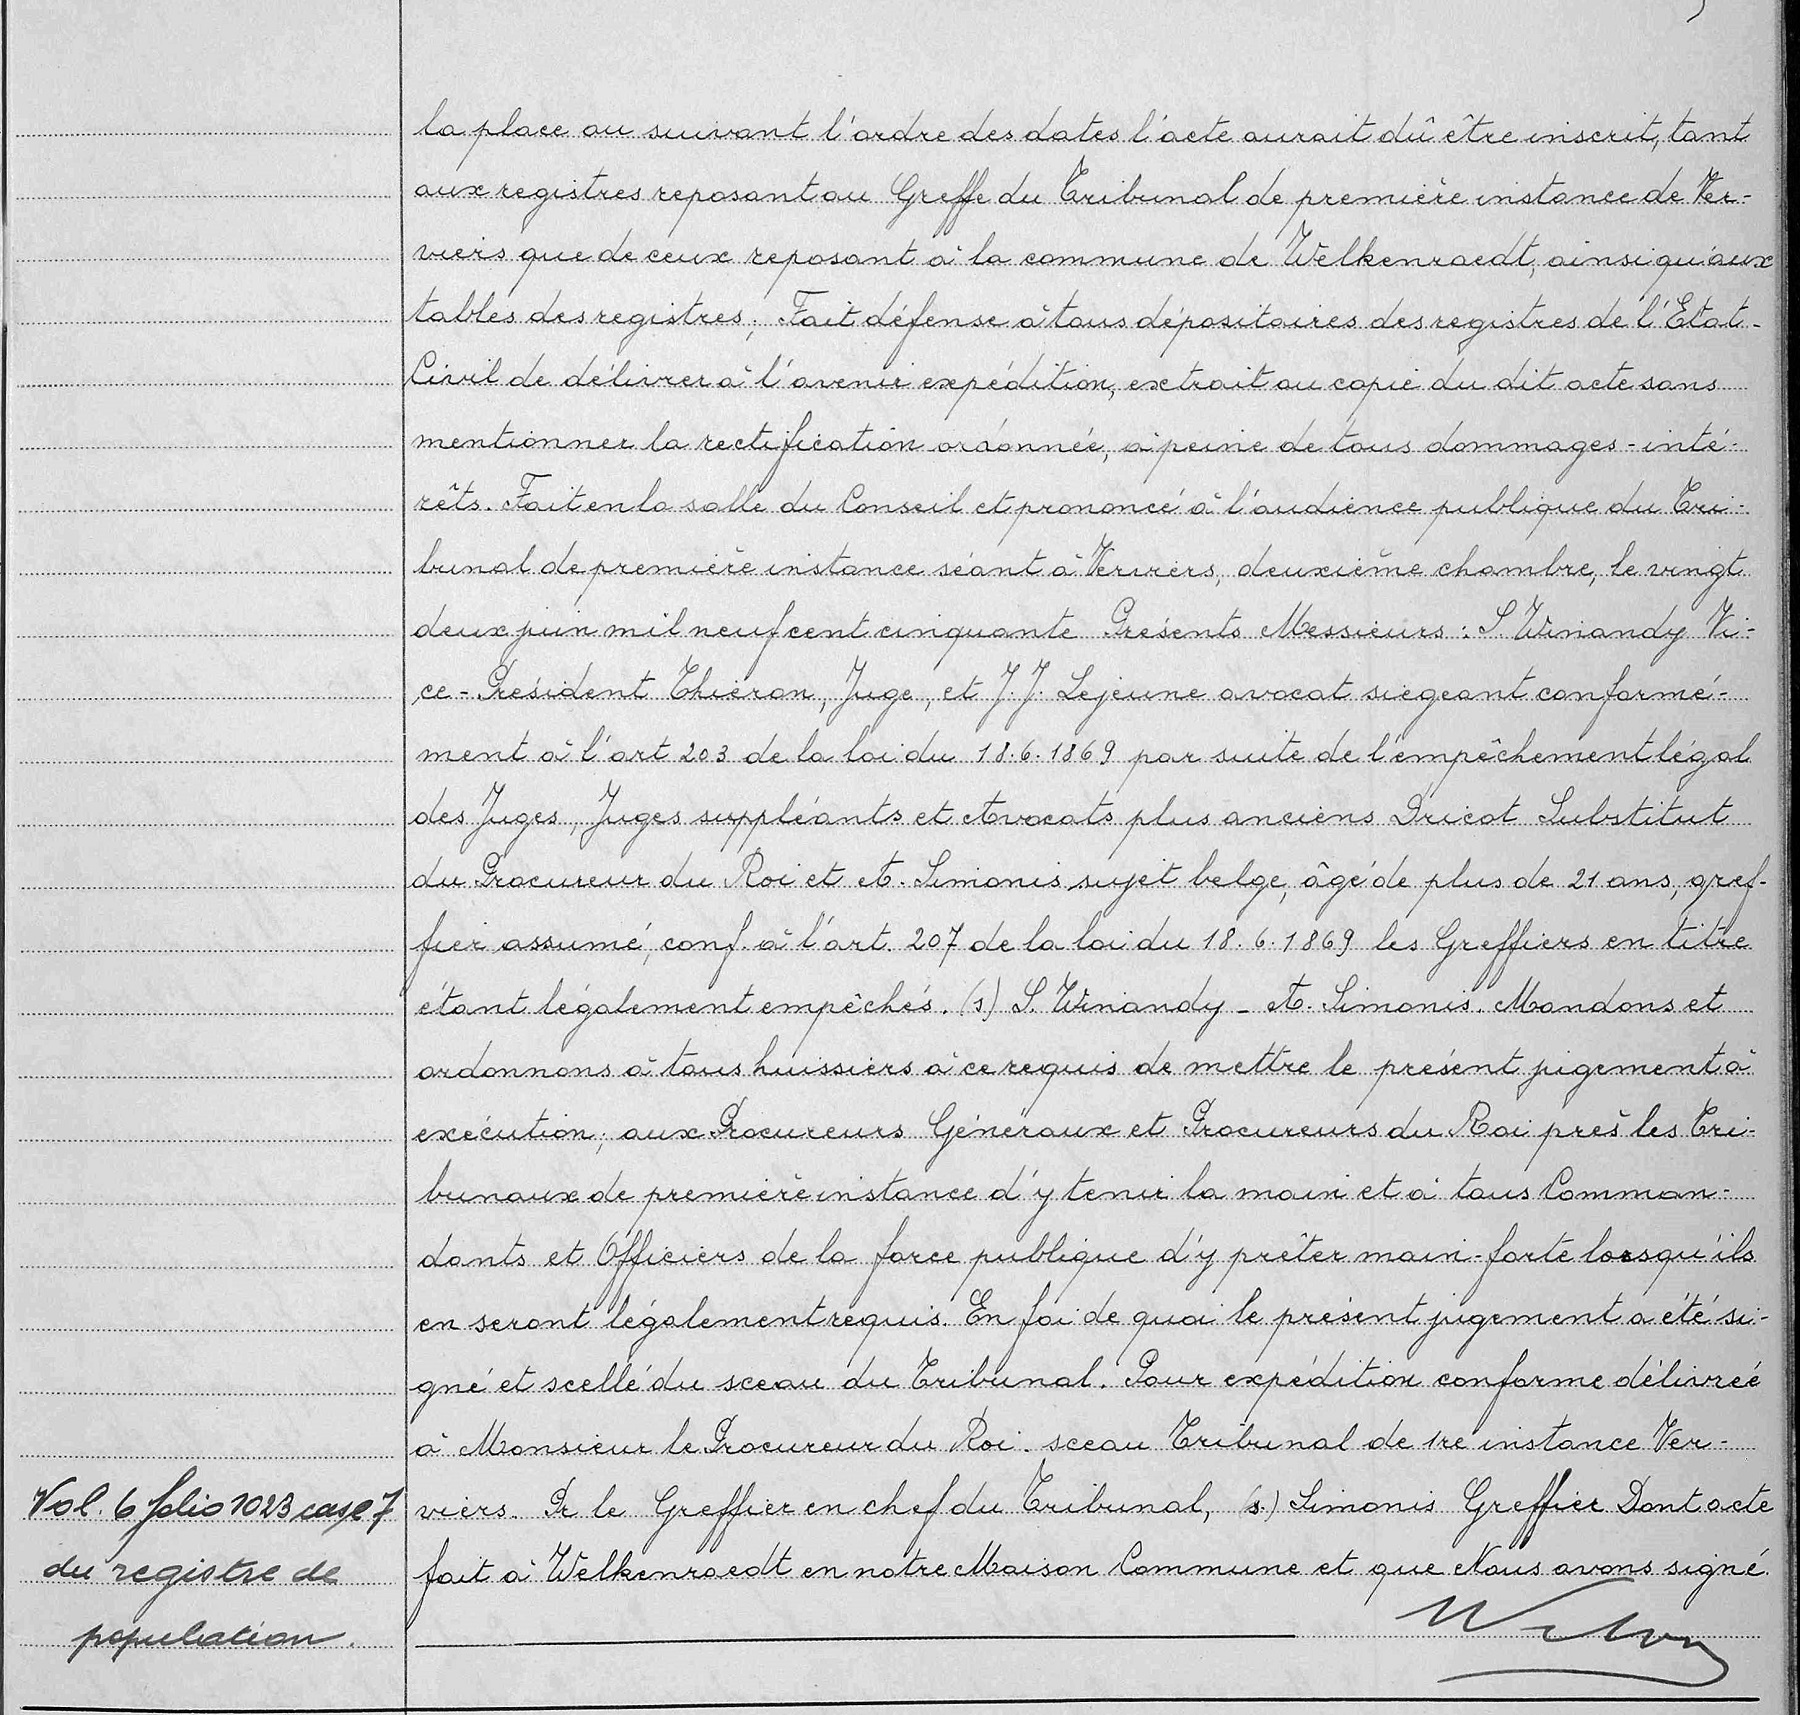 la place ou suivant l'ordre des dates l'acte aurait dû être inscrit, tant
aux registres reposant au Greffe du Tribunal de première instance de Ver-
viers que de ceux reposant à la commune de Welkenraedt, ainsi qu'aux
tables des registres; Fait défense à tous dépositaires des registres de l'Etat-
Civil de délivrer à l'avenir expédition, extrait ou copie du dit acte sans
mentionner la rectification ordonnée, à peine de tous dommages-inté-
rêts. Fait en la salle du Conseil et prononcé à l'audience publique du Tri-
bunal de première instance séant à Verviers, deuxième chambre, le vingt
deux juin mil neuf cent cinquante Présents Messieurs: S. Winandy Vi-
ce-Président Thiéron, Juge, et J.J. Lejeune avocat siégeant conformé-
ment à l'art 203 de la loi du 18.6.1869 par suite de l'empêchement légal
des Juges, Juges suppléants et Avocats plus anciens Dricot Substitut
du Procureur du Roi et A. Simonis sujet belge, âgé de plus de 21 ans, gref-
fier assumé, conf. à l'art. 207 de la loi du 18.6.1869 les Greffiers en titre
étant légalement empêchés. (s) S. Winandy - A. Simonis. Mandons et
ordonnons à tous huissiers à ce requis de mettre le présent jugement à
exécution; aux Procureurs Généraux et Procureurs du Roi près les Tri-
bunaux de première instance d'y tenir la main et à tous Comman-
dants et Officiers de la force publique d'y prêter main-forte lorsqu'ils
en seront légalement requis. En foi de quoi le présent jugement a été si-
gné et scellé du sceau du Tribunal. Pour expédition conforme délivrée
à Monsieur le Procureur du Roi. sceau Tribunal de 1re instance Ver-
viers. Pr le Greffier en chef du Tribunal, (s.) Simonis Greffier Dont acte
fait à Welkenraedt en notre Maison Commune et que Nous avons signé.
Vol. 6 folio 1023 case 7
du registre de
population.